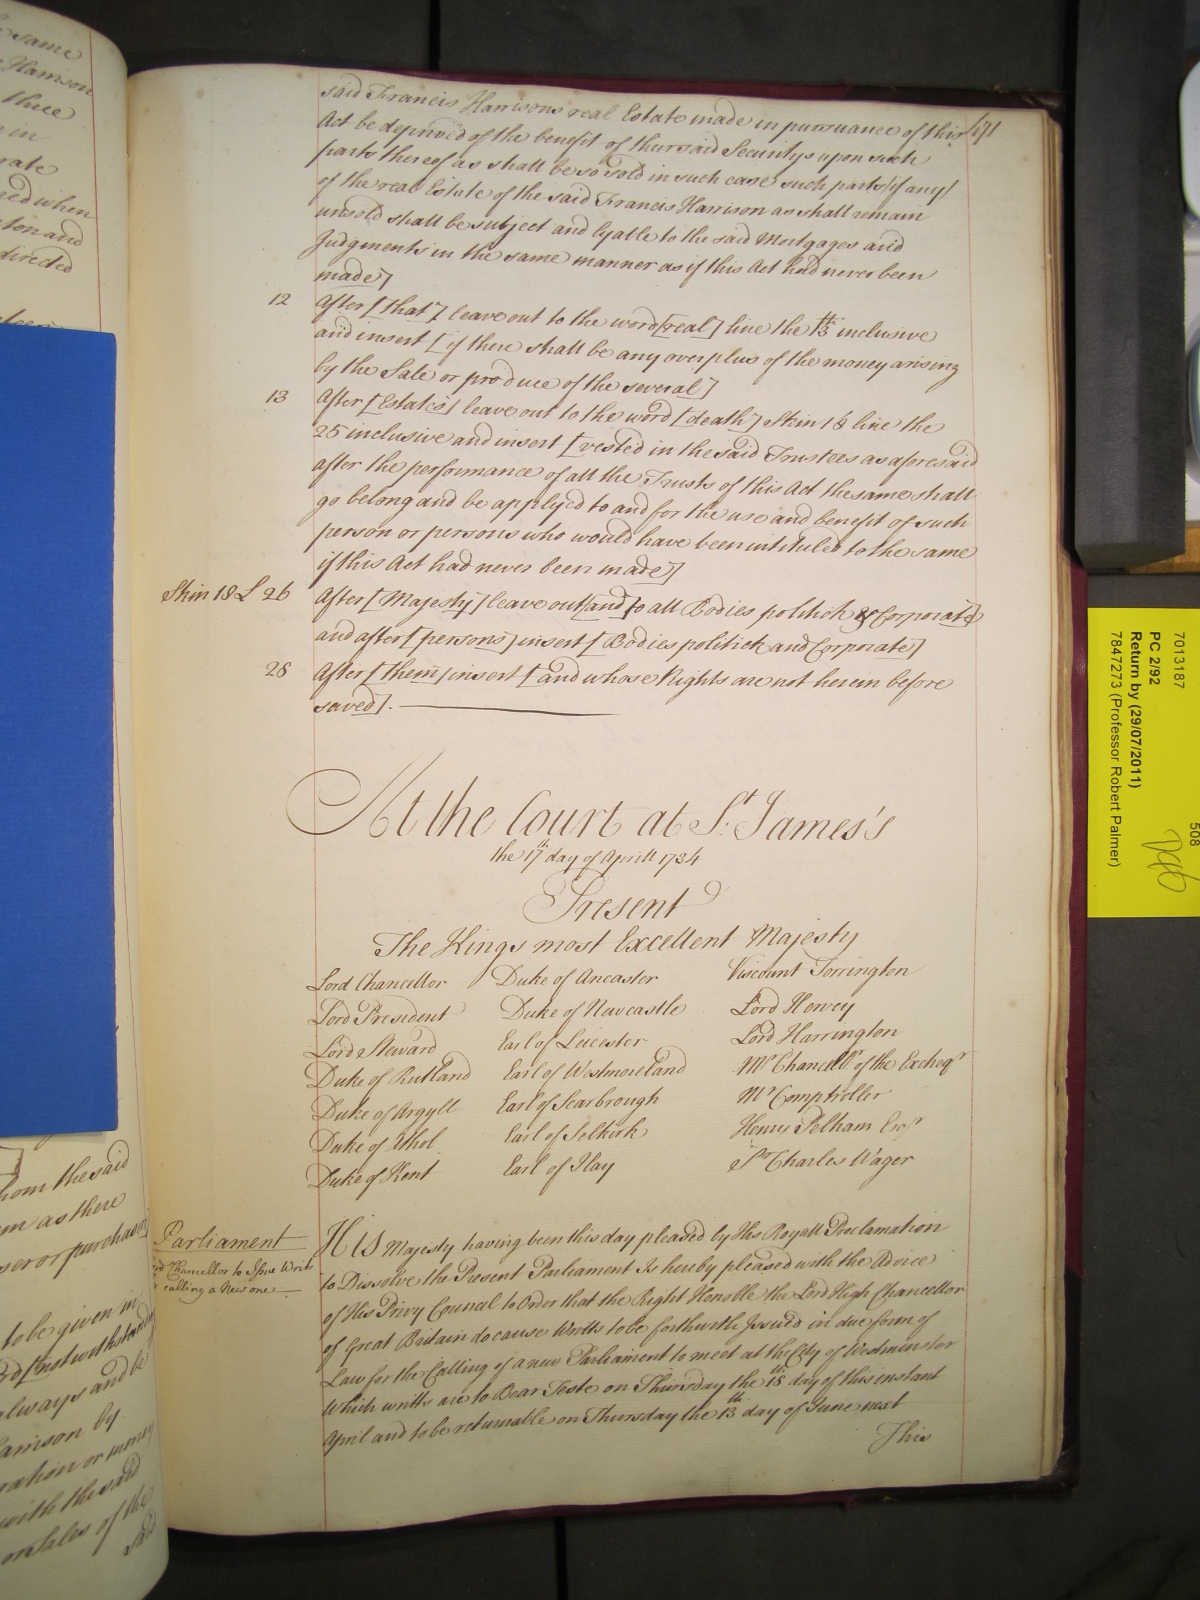 said Francis Harrisons real Estate made in pursuance of this 171
Act be deprived of the benefit of their said Securitys upon such
parts thereof as shall be so sold in such case such parts (if any)
of the real Estate of the said Francis Harrison as shall remain
unsold shall be subject and lyable to the said Mortgages and
Judgments in the same manner as if this Act had never been
made]
12 After [that] leave out to the word [real] line the 15th inclusive
and insert [if there shall be any overplus of the money arising
by the Sale or produce of the several]
13 After [Estates] leave out to the word [death] Skin 18 line the
25 inclusive and insert [vested in the said Trustees as aforesaid
after the performance of all the Trusts of this Act the same shall
go belong and be applyed to and for the use and benefit of such
person or persons who would have been intituled to the same
if this Act had never been made]
Skin 18 L 26 After [Majesty] leave out [and] to all Bodies politick & Corporate
and after [persons] insert [Bodies politick and Corporate]
28 After [them] insert [and whose Rights are not herein before
saved].
At the Court at St. James's
the 17th day of Aprill 1734
Present
The Kings most Excellent Majesty
Lord Chancellor Duke of Ancaster Viscount Torrington
Lord President Duke of Newcastle Lord Hervey
Lord Steward Earl of Leicester Lord Harrington
Duke of Rutland Earl of Westmoreland Mr Chancellr of the Excheqr
Duke of Argyll Earl of Scarbrough Mr Comptroller
Duke of Athol Earl of Selkirk Henry Pelham Esqr
Duke of Kent Earl of Ilay Sr Charles Wager
Parliament
Chancellor to Issue Writs
calling a New one
His Majesty having been this day pleased by His Royall Proclamation
to Dissolve the Present Parliament Is hereby pleased with the Advice
of His Privy Council to Order that the Right Honoble the Lord High Chancellor
of Great Britain do cause Writts to be forthwith Issued in due form of
Law for the Calling of a new Parliament to meet at the City of Westminster
Which writts are to Bear Teste on Thursday the 18th day of this instant
April and to be returnable on Thursday the 13th day of June next
This
same
Harrison
three
in
when
and
directed
hom the said
m as there
ser or purchaser
to be given in
notwithstanding
always and be
Harrison by
or money
with the said
or Sales of the
said
7013187
PC 2/92
Return by (29/07/2011)
7847273 (Professor Robert Palmer)
508